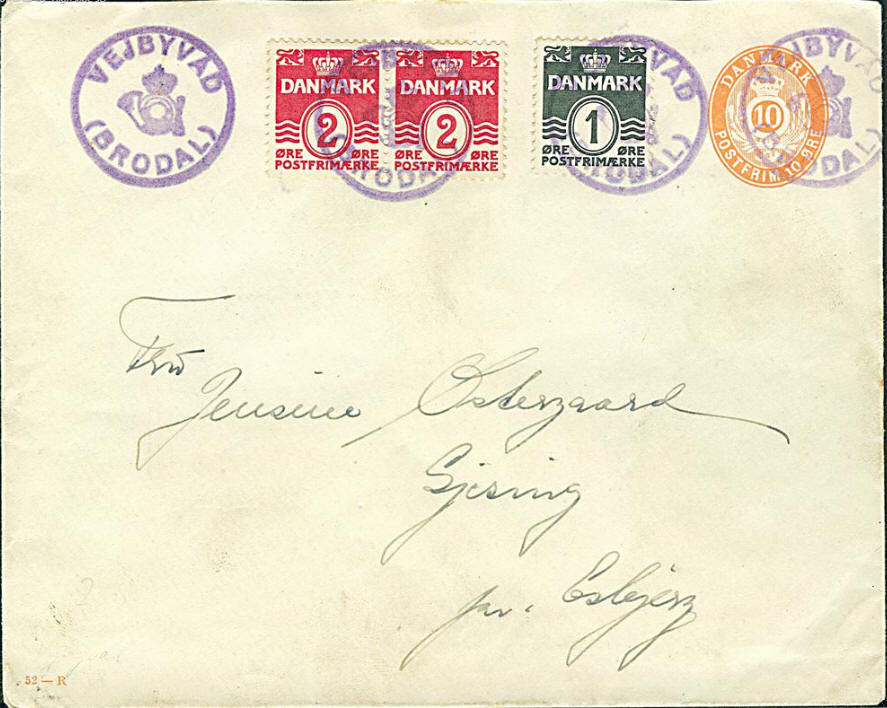 VEJBYVAD
(BRODAL)
DANMARK
2
ØRE ØRE
POSTFRIMÆRKE
DANMARK
2
ØRE ØRE
POSTFRIMÆRKE
DANMARK
1
ØRE ØRE
POSTFRIMÆRKE
VEJBYVAD
(BRODAL)
DANMARK
10
POSTFRIM. 10 ØRE
VEJBYVAD
(BRODAL)
Fru
Jensine Østergaard
Gjesing
pr. Esbjerg
52 — R